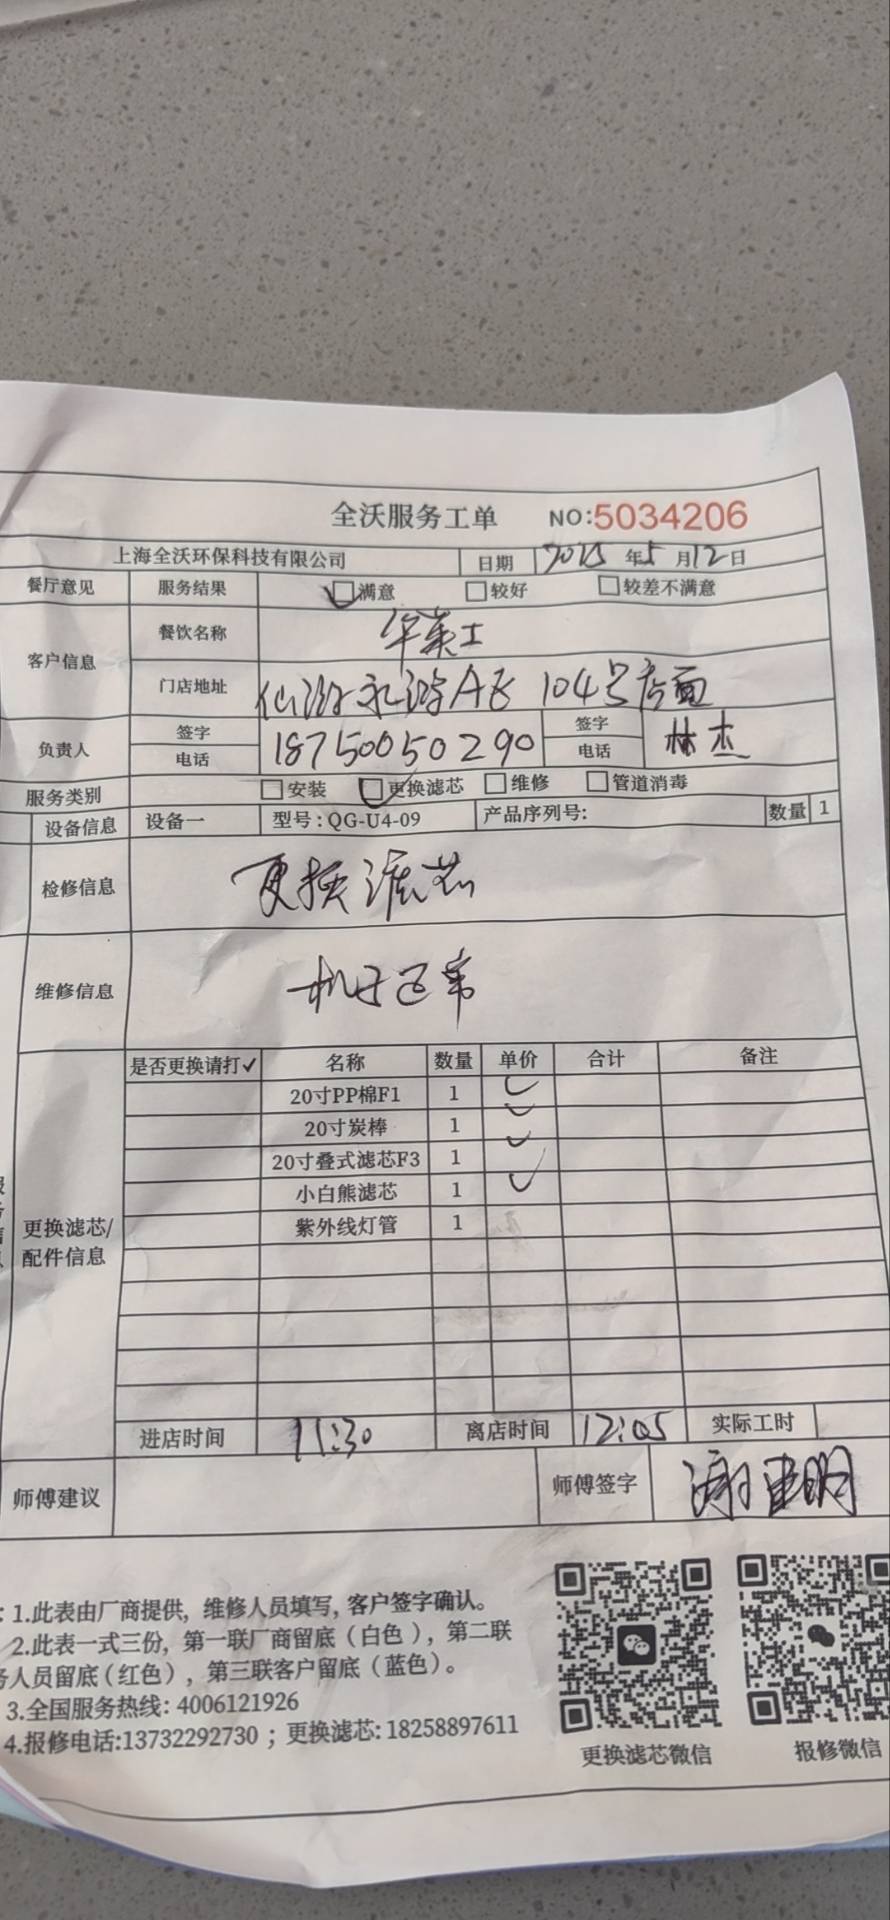 全沃服务工单 NO:5034206
上海全沃环保科技有限公司 日期 2025 年 5 月 12 日
餐厅意见 服务结果 满意 较好 较差不满意
客户信息 餐饮名称 华莱士
门店地址 仙游永鸿A区 104号店面
负责人 签字 电话 18750050290 签字 电话 林杰
服务类别 安装 更换滤芯 维修 管道消毒
设备信息 设备一 型号:QG-U4-09 产品序列号: 数量 1
检修信息 更换滤芯
维修信息 机子正常
是否更换请打✓ 名称 数量 单价 合计 备注
20寸PP棉F1 1 ✓
20寸炭棒 1 ✓
20寸叠式滤芯F3 1 ✓
小白熊滤芯 1 ✓
紫外线灯管 1
更换滤芯/
配件信息
进店时间 11:30 离店时间 12:05 实际工时
师傅建议 师傅签字
: 1.此表由厂商提供, 维修人员填写, 客户签字确认。
2.此表一式三份, 第一联厂商留底(白色), 第二联
务人员留底(红色), 第三联客户留底(蓝色)。
3.全国服务热线: 4006121926
4.报修电话:13732292730 ; 更换滤芯: 18258897611
更换滤芯微信 报修微信